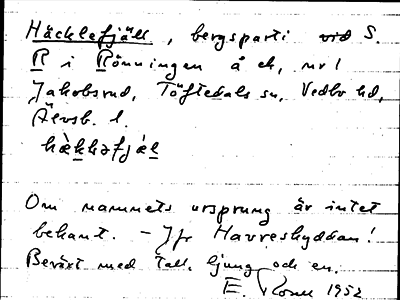 Häcklefjäll, bergsparti vid S.
R i Rönningen å ek, nr 1
Jakobsrud, Töftedals sn, Vedbo hd,
Älvsb. l.
Om namnets ursprung är intet
bekant. – Jfr Havreskyddan!
Beväxt med tall, ljung och en.
E. 1952